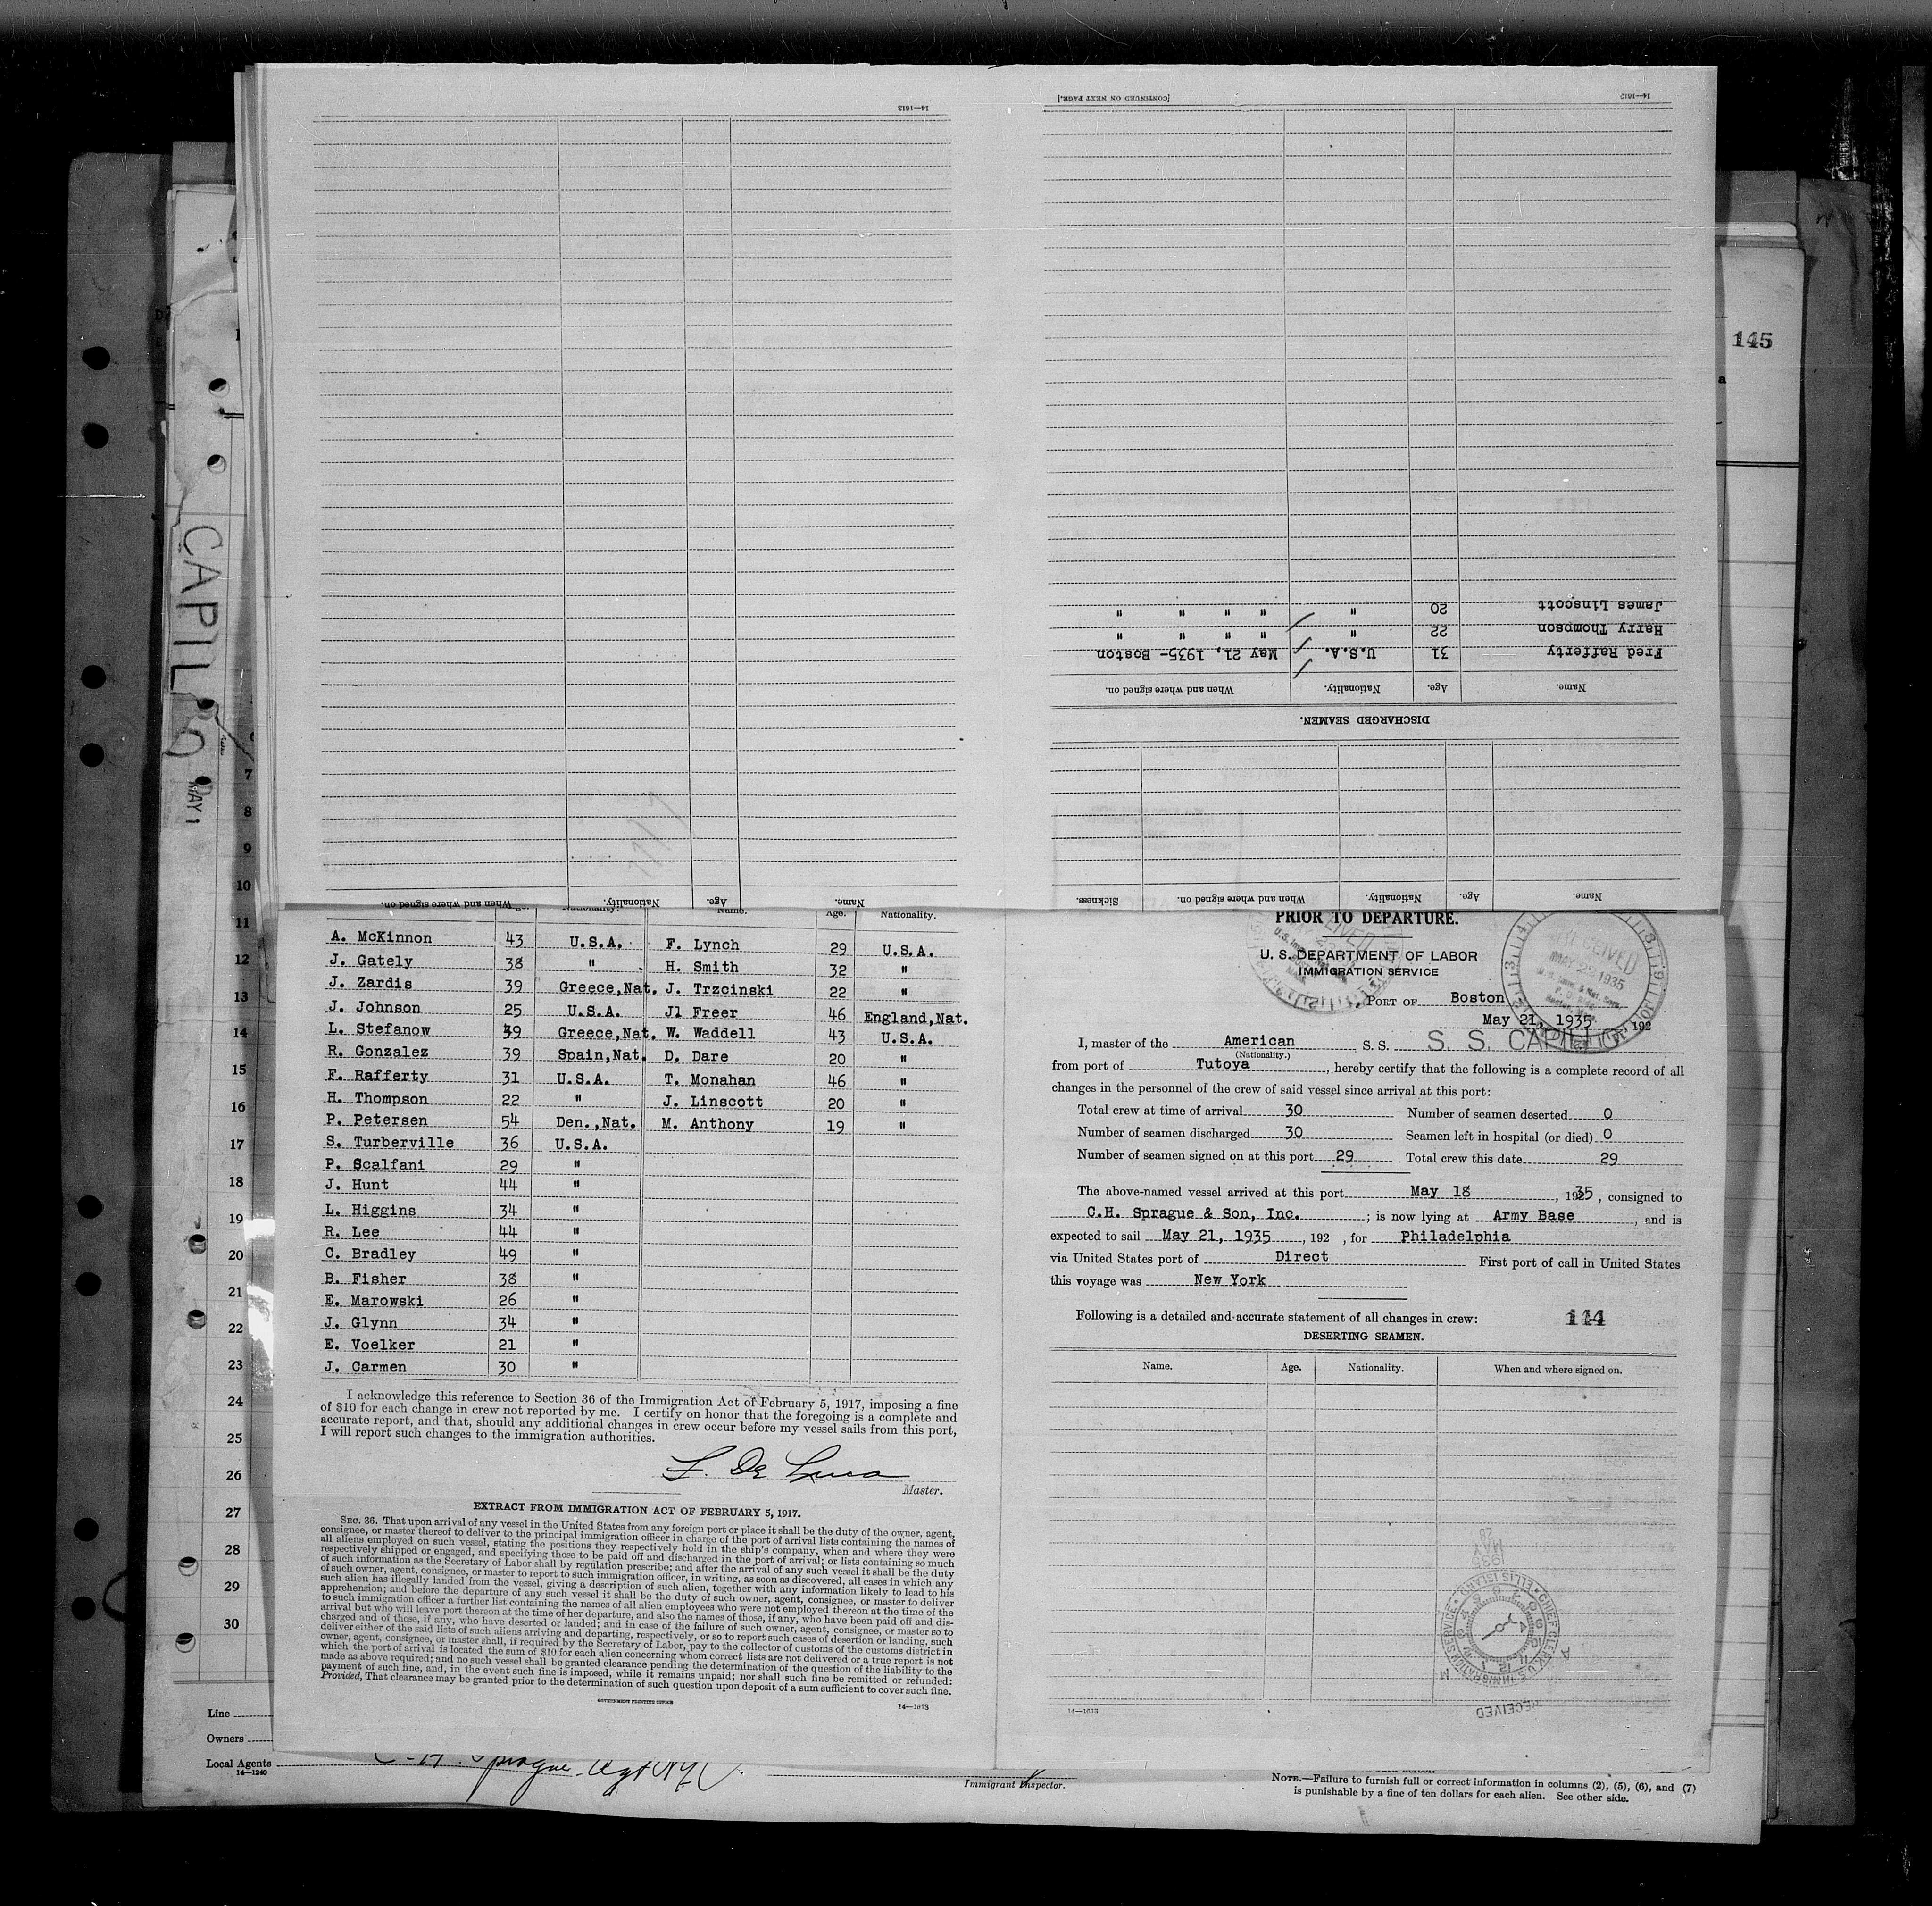 14—1613
[CONTINUED ON NEXT PAGE.]
14—1613
James Linscott 20 " " " " "
Harry Thompson 22 " " " " "
Fred Rafferty 31 U.S.A. May 21, 1935- Boston
Name. Age. Nationality. When and where signed on.
DISCHARGED SEAMEN.
Name. Age. Nationality. When and where signed on. Sickness.
Name. Age. Nationality. When and where signed on.
145
CAPILLO
MAY 1
7
8
9
10
11
12
13
14
15
16
17
18
19
20
21
22
23
24
25
26
27
28
29
30
Name. Age. Nationality.
A. McKinnon 43 U.S.A. F. Lynch 29 U.S.A.
J. Gately 38 " H. Smith 32 "
J. Zardis 39 Greece,Nat. J. Trzcinski 22 "
J. Johnson 25 U.S.A. Jl Freer 46 England,Nat.
L. Stefanow 39 Greece,Nat. W. Waddell 43 U.S.A.
R. Gonzalez 39 Spain,Nat. D. Dare 20 "
F. Rafferty 31 U.S.A. T. Monahan 46 "
H. Thompson 22 " J. Linscott 20 "
P. Petersen 54 Den.,Nat. M. Anthony 19 "
S. Turberville 36 U.S.A.
P. Scalfani 29 "
J. Hunt 44 "
L. Higgins 34 "
R. Lee 44 "
C. Bradley 49 "
B. Fisher 38 "
E. Marowski 26 "
J. Glynn 34 "
E. Voelker 21 "
J. Carmen 30 "
I acknowledge this reference to Section 36 of the Immigration Act of February 5, 1917, imposing a fine
of $10 for each change in crew not reported by me. I certify on honor that the foregoing is a complete and
accurate report, and that, should any additional changes in crew occur before my vessel sails from this port,
I will report such changes to the immigration authorities.
F. De Luca
Master.
EXTRACT FROM IMMIGRATION ACT OF FEBRUARY 5, 1917.
SEC. 36. That upon arrival of any vessel in the United States from any foreign port or place it shall be the duty of the owner, agent,
consignee, or master thereof to deliver to the principal immigration officer in charge of the port of arrival lists containing the names of
all aliens employed on such vessel, stating the positions they respectively hold in the ship's company, when and where they were
respectively shipped or engaged, and specifying those to be paid off and discharged in the port of arrival; or lists containing so much
of such information as the Secretary of Labor shall by regulation prescribe; and after the arrival of any such vessel it shall be the duty
of such owner, agent, consignee, or master to report to such immigration officer, in writing, as soon as discovered, all cases in which any
such alien has illegally landed from the vessel, giving a description of such alien, together with any information likely to lead to his
apprehension; and before the departure of any such vessel it shall be the duty of such owner, agent, consignee, or master to deliver
to such immigration officer a further list containing the names of all alien employees who were not employed thereon at the time of the
arrival but who will leave port thereon at the time of her departure, and also the names of those, if any, who have been paid off and dis-
charged and of those, if any, who have deserted or landed; and in case of the failure of such owner, agent, consignee, or master so to
deliver either of the said lists of such aliens arriving and departing, respectively, or so to report such cases of desertion or landing, such
owner, agent, consignee, or master shall, if required by the Secretary of Labor, pay to the collector of customs of the customs district in
which the port of arrival is located the sum of $10 for each alien concerning whom correct lists are not delivered or a true report is not
made as above required; and no such vessel shall be granted clearance pending the determination of the question of the liability to the
payment of such fine, and, in the event such fine is imposed, while it remains unpaid; nor shall such fine be remitted or refunded:
Provided, That clearance may be granted prior to the determination of such question upon deposit of a sum sufficient to cover such fine.
GOVERNMENT PRINTING OFFICE
14—1613
PRIOR TO DEPARTURE.
U. S. DEPARTMENT OF LABOR
IMMIGRATION SERVICE
RECEIVED
MAY 22 1935
PORT OF Boston
May 21, 1935, 192
I, master of the American S. S. S. S. CAPILLO
(Nationality.)
from port of Tutoya, hereby certify that the following is a complete record of all
changes in the personnel of the crew of said vessel since arrival at this port:
Total crew at time of arrival 30 Number of seamen deserted 0
Number of seamen discharged 30 Seamen left in hospital (or died) 0
Number of seamen signed on at this port 29 Total crew this date 29
The above-named vessel arrived at this port May 18, 1935, consigned to
C.H. Sprague & Son, Inc.; is now lying at Army Base, and is
expected to sail May 21, 1935, 192 , for Philadelphia
via United States port of Direct First port of call in United States
this voyage was New York
Following is a detailed and accurate statement of all changes in crew: 144
DESERTING SEAMEN.
Name. Age. Nationality. When and where signed on.
28
MAY
1935
ELLIS ISLAND
CHIEF CLERK U.S. IMMIGRATION SERVICE
RECEIVED
14—1613
Line
Owners
Local Agents C-H. Sprague Agt NYC
14—1240
Immigrant Inspector.
NOTE.—Failure to furnish full or correct information in columns (2), (5), (6), and (7)
is punishable by a fine of ten dollars for each alien. See other side.